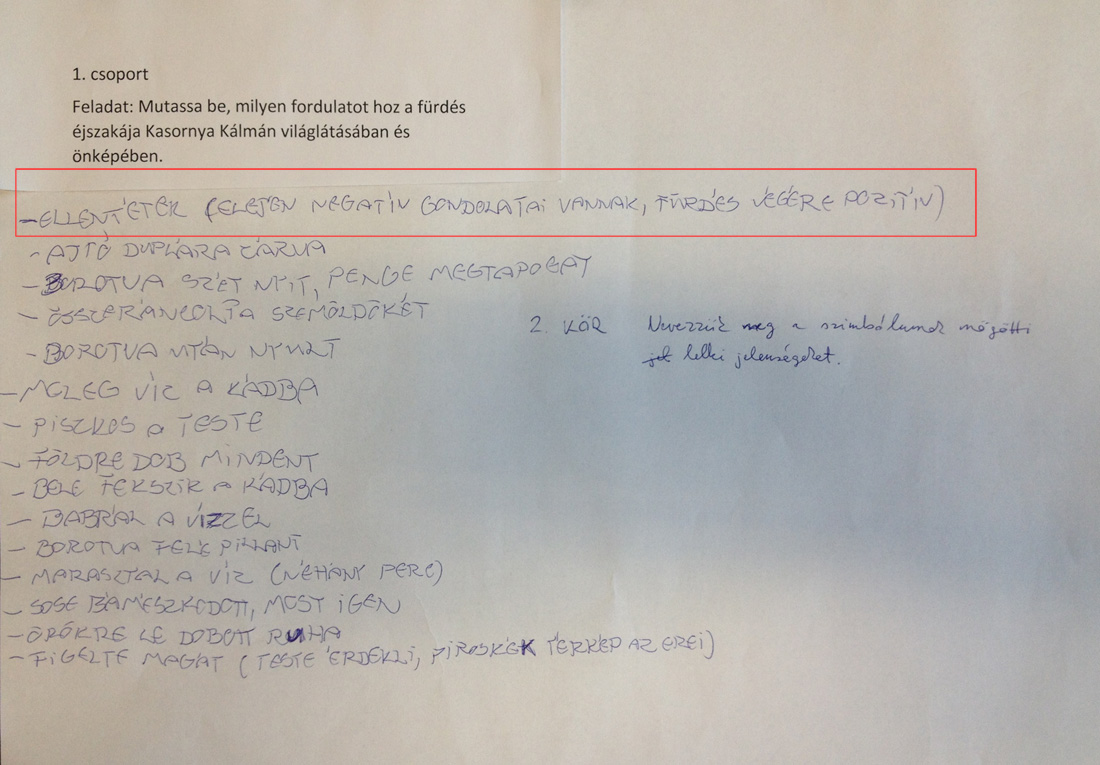 1. csoport
Feladat: Mutassa be, milyen fordulatot hoz a fürdés
éjszakája Kasornya Kálmán világlátásában és
önképében.
- ELLENTÉTEK (ELEJÉN NEGATÍV GONDOLATAI VANNAK, FÜRDÉS VÉGÉRE POZITÍV)
- AJTÓ DUPLÁRA ZÁRVA
- BOROTVA SZÉT NYIT, PENGE MEGTAPOGAT
- ÖSSZERÁNCOLTA SZEMÖLDÖKÉT
- BOROTVA UTÁN NYÚLT
- MELEG VÍZ A KÁDBA
- PISZKOS A TESTE
- FÖLDRE DOB MINDENT
- BELE FEKSZIK A KÁDBA
- BABRÁL A VÍZZEL
- BOROTVA FELÉ PILLANT
- MARASZTAL A VÍZ (NÉHÁNY PERC)
- SOSE BÁMÉSZKODOTT, MOST IGEN
- ÖRÖKRE LE DOBOTT RUHA
- FIGELTE MAGÁT (TESTE ÉRDEKLI, PIROSKÉK TÉRKÉP AZ EREI)
2. KÖR Nevezzük meg a szimbólumok mögötti
lelki jelenségeket.